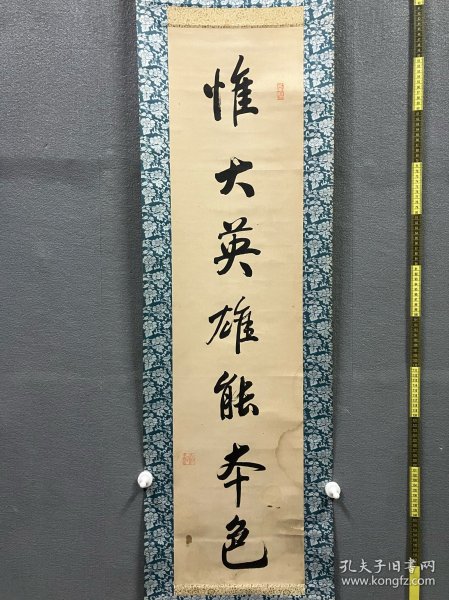 惟大英雄能本色
孔夫子旧书网
www.kongfz.com